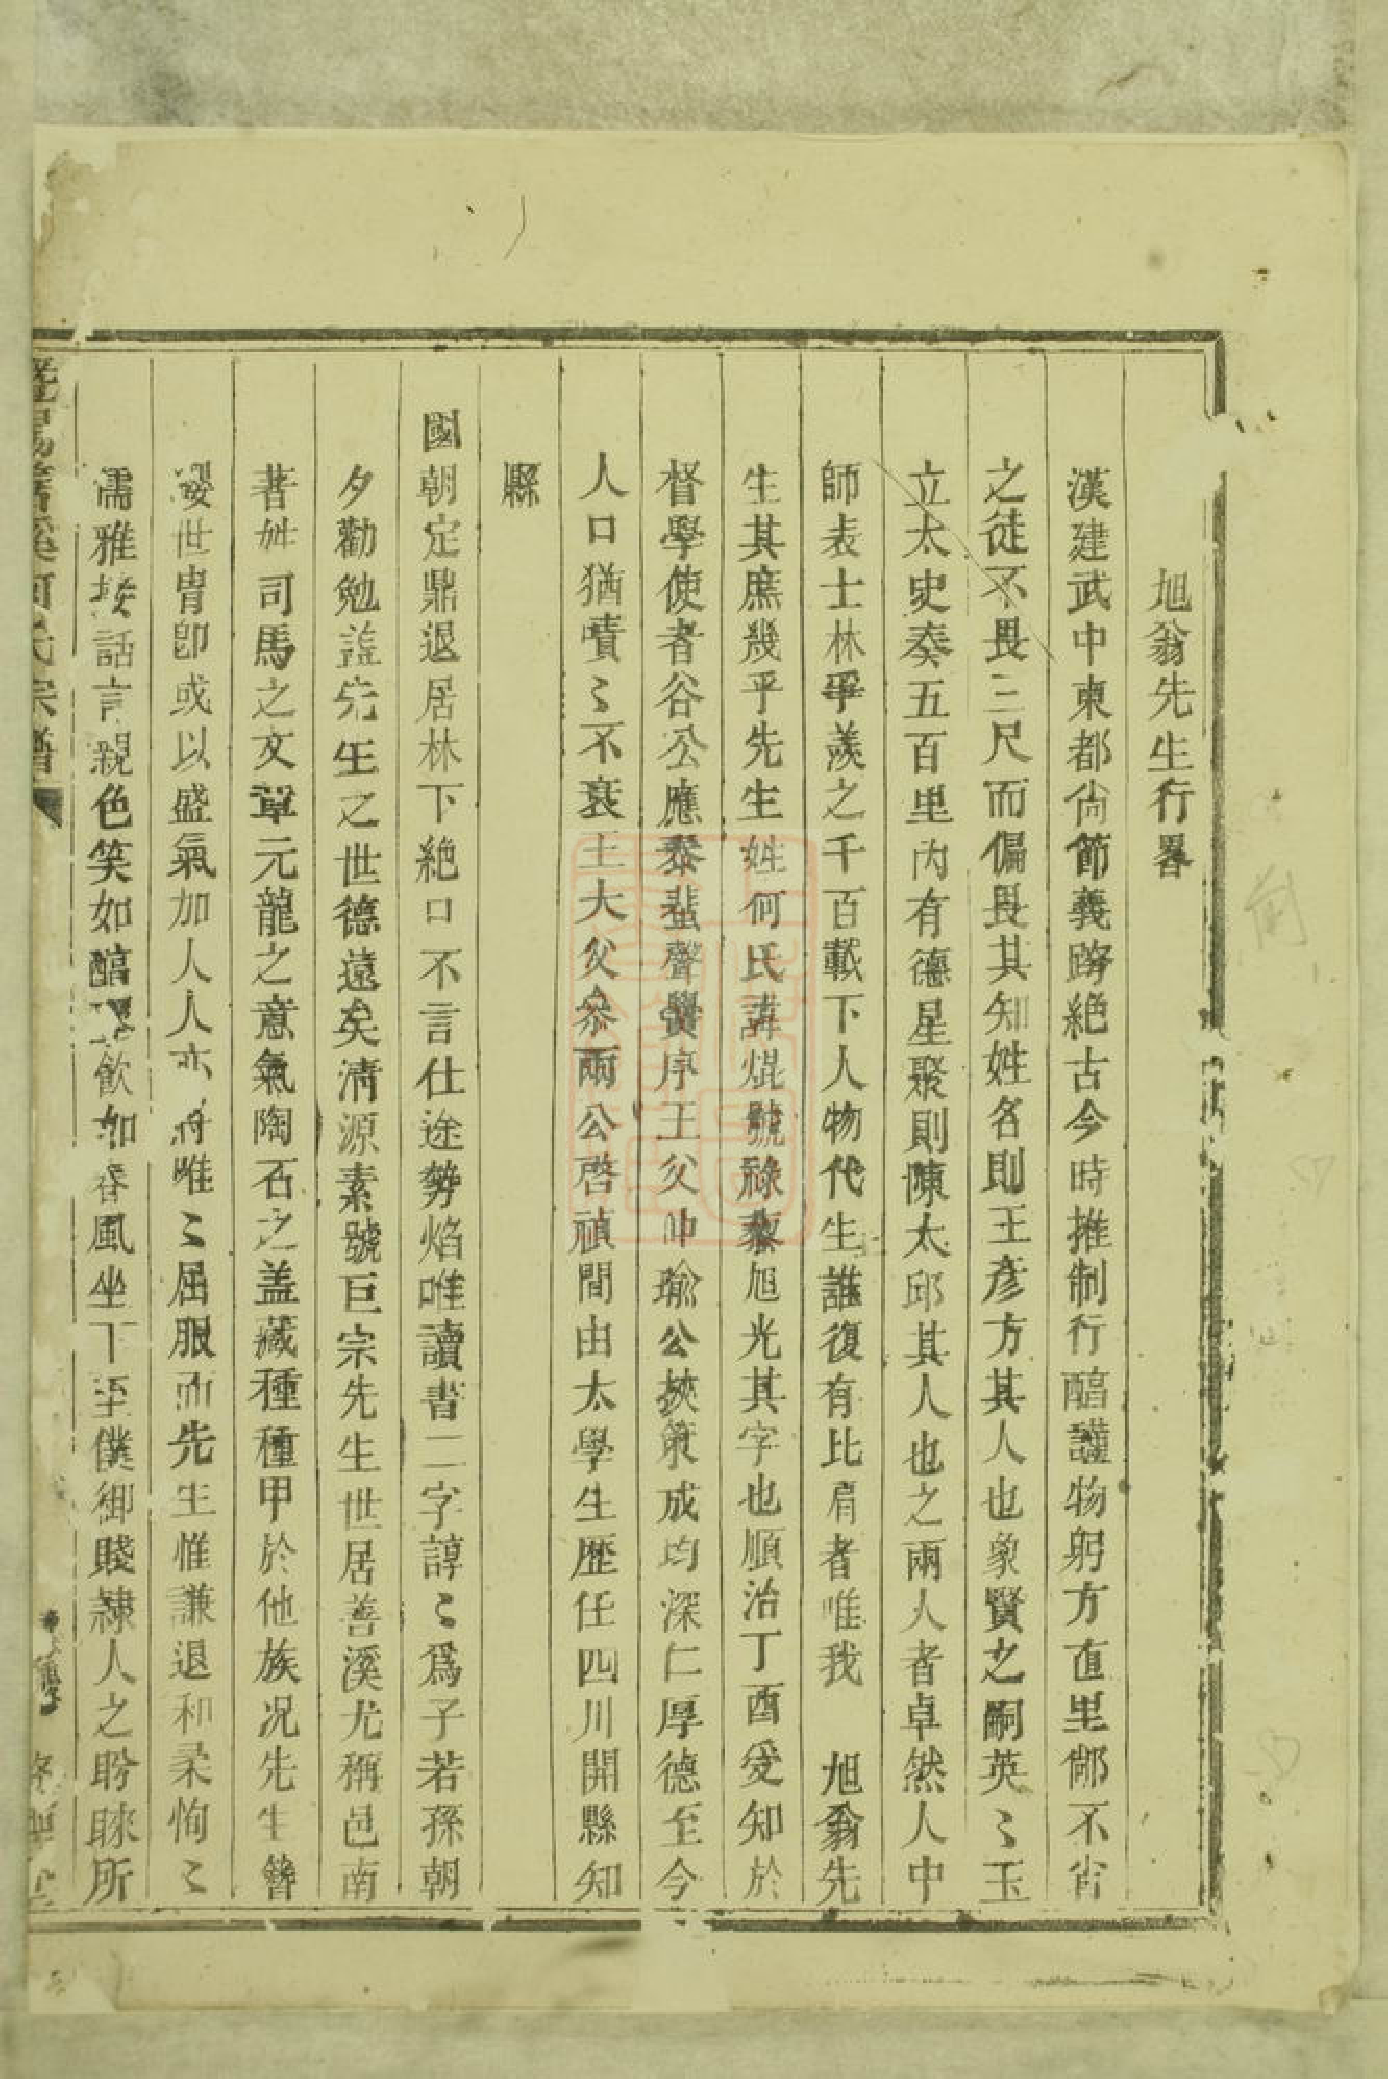 旭翁先生行畧
漢建武中東都尙節義跨絶古今時推制行醕謹物躬方直里鄰不肖
之徒不畏三尺而偏畏其知姓名則王彥方其人也象賢之嗣英〻玉
立太史奏五百里內有德星聚則陳太邱其人也之兩人者卓然人中
師表士林爭羨之千百載下人物代生誰復有比肩者唯我 旭翁先
生其庶幾乎先生姓何氏諱焜號祿藜旭光其字也順治丁酉受知於
督學使者谷公應泰蜚聲黌序王父仲瑜公挾策成均深仁厚德至今
人口猶嘖〻不衰王大父叅兩公啓禎間由太學生歷任四川開縣知
縣
國朝定鼎退居林下絶口不言仕途勢焰唯讀書二字諄〻爲子若孫朝
夕勸勉葢先生之世德遠矣淸源素號巨宗先生世居善溪尤稱邑南
著姓司馬之文章元龍之意氣陶石之盖藏種種甲於他族况先生簪
纓世胄卽或以盛氣加人人亦將唯〻屈服而先生惟謙退和柔恂〻
儒雅接話言親色笑如醕醪飮如春風坐下至僕御賤隷人之盼睐所
暨陽善溪何氏宗譜